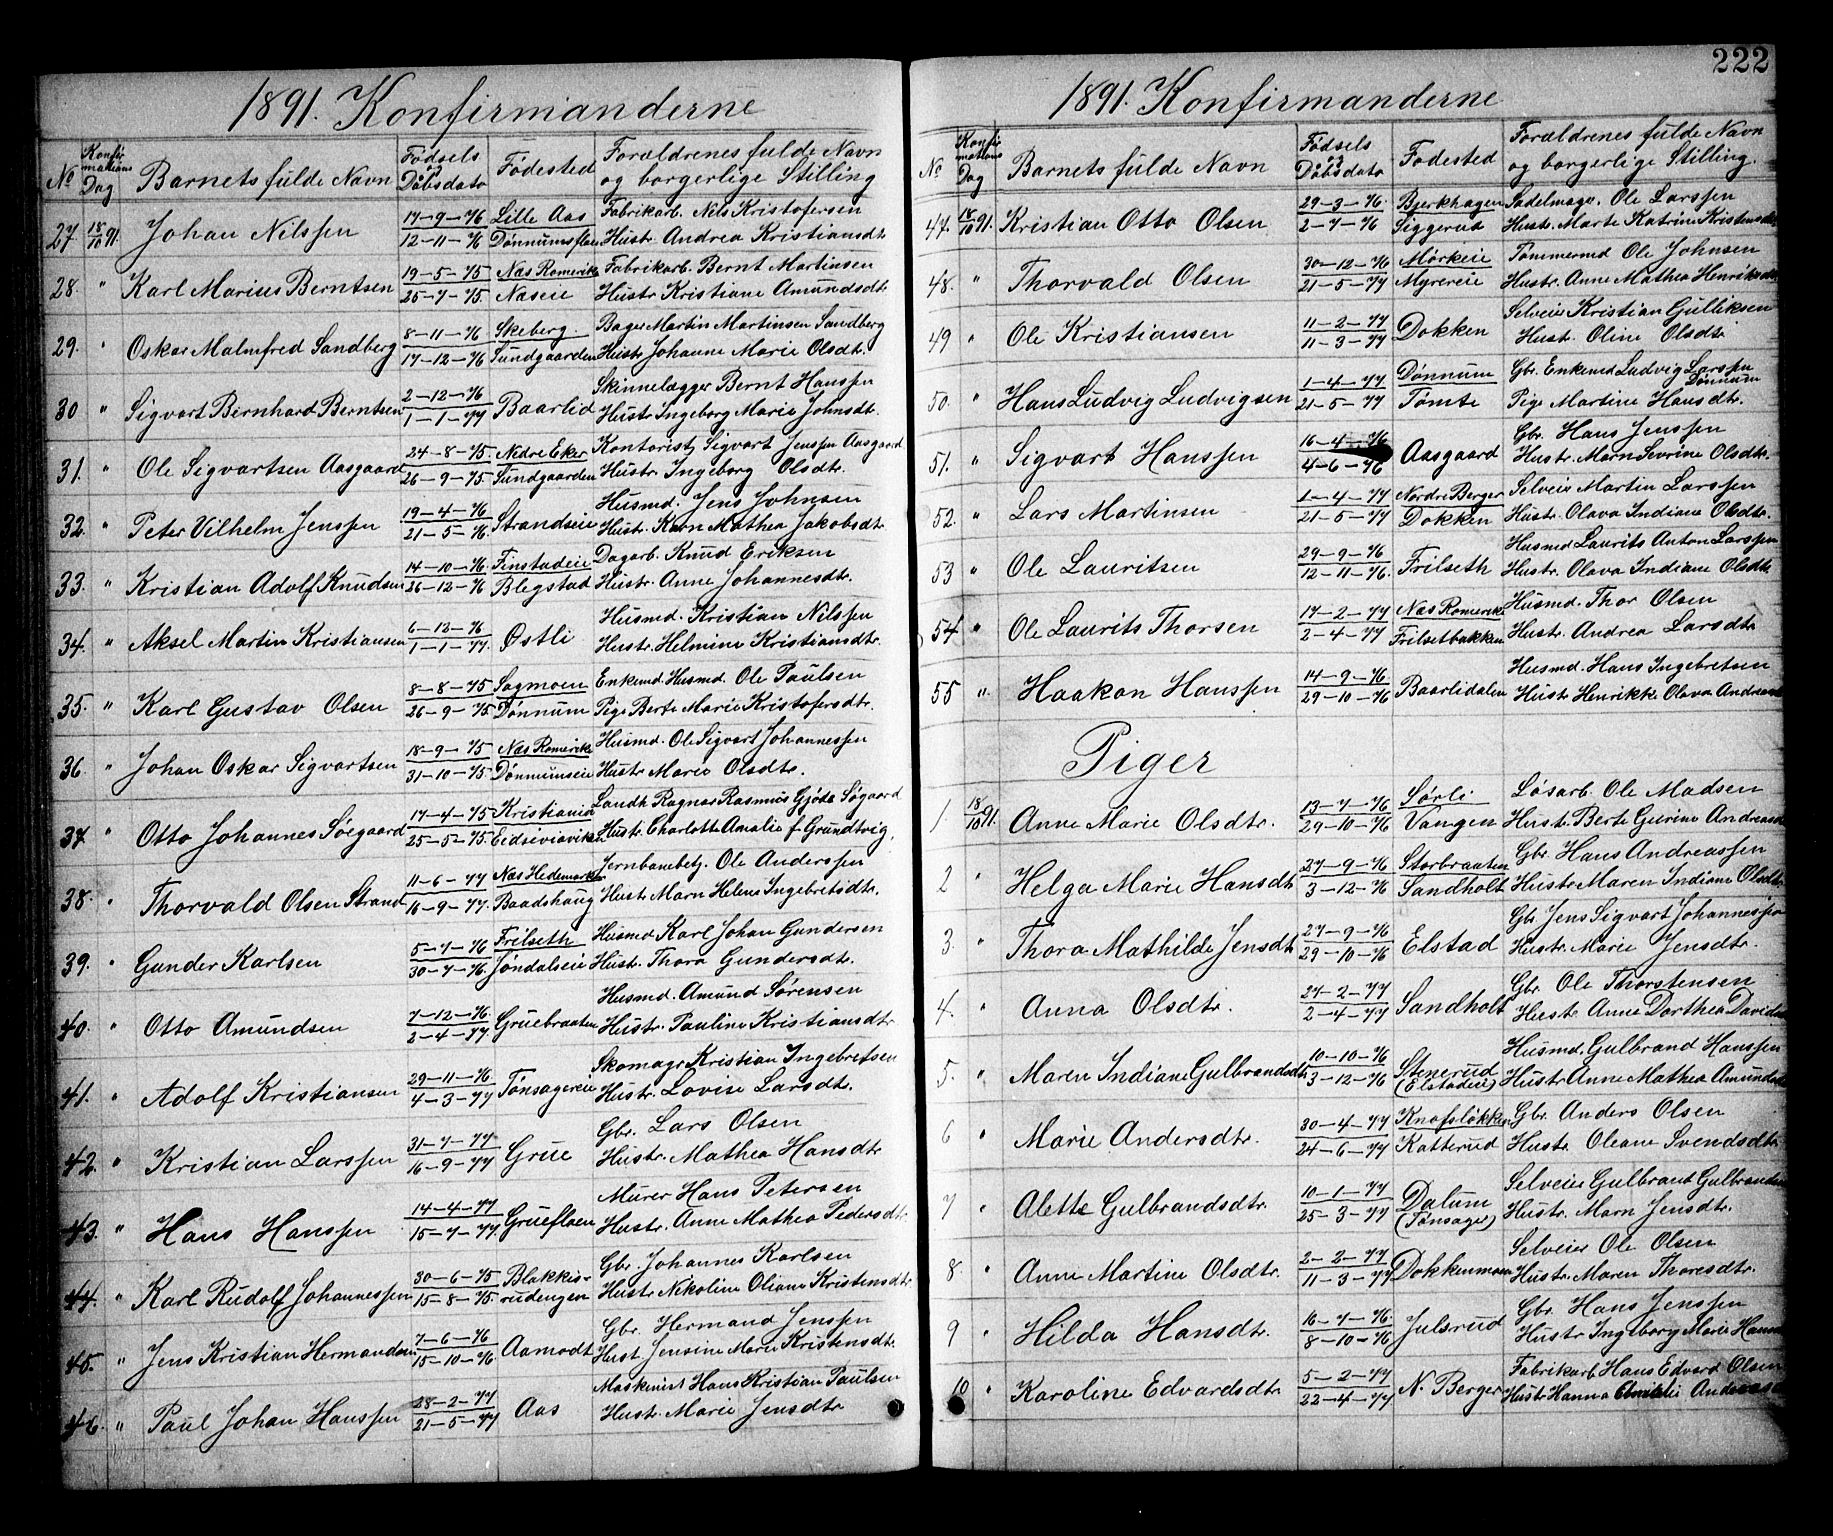 1891. Konfirmanderne
No Konfir mations Dag Barnets fulde Navn Fødsels og Døbsdato Fødested Forældrenes fulde Navn og borgerlige Stilling
27. 18/10 91. Johan Nilssen 17-9-76 Lille Aas Fabrikarb. Nils Kristofersen
12-11-76 Dønnumsfloen Hustr. Andrea Kristiansdtr.
28. " Karl Marius Berntsen 19-5-75 Næs Romerike Fabrikarb. Bernt Martinsen
25-7-75 Næseie Hustr Kristiane Amundsdtr.
29. " Oskar Malmfred Sandberg 8-11-76 Skeberg. Bager Martin Martinsen Sandberg
17-12-76 Sundgaarden Hustr Johanne Marie Olsdtr.
30 " Sigvart Bernhard Berntsen 2-12-76 Baarlid Skinnelægger Bernt Hanssen
1-1-77 Hustr Ingeborg Marie Johnsdtr.
31. " Ole Sigvartsen Aasgaard 24-8-75 Nedre Eker Kontorist Sigvart Jenssen Aasgaard
26-9-75 Sundgaarden Hustr. Ingeborg Olsdtr.
32. " Peter Vilhelm Jenssen 19-4-76 Strandseie Husmd. Jens Johnsen
21-5-76. Hustr. Karn Mathea Jakobsdtr
33. " Kristian Adolf Knudsen 14-10-76 Finstadeie Dagarb. Knud Eriksen
26-12-76 Blegstad Hustr. Anne Johannesdtr.
34. " Aksel Martin Kristiansen 6-12-76 Østli Husmd. Kristian Nilssen
1-1-77. Hustr. Helmine Kristiansdtr.
35. " Karl Gustav Olsen 8-8-75 Sagmoen Enkemd. Husmd. Ole Paulsen
26-9-75 Dønnum Pige Berte Marie Kristofersdtr.
36. " Johan Oskar Sigvartsen 18-9-75 Næs Romerike Husmd. Ole Sigvart Johannessen
31-10-75. Dønnumseie Hustr Marie Olsdtr.
37 Otto Johannes Søegaard 17-4-75 Kristiania Landh. Ragnar Rasmus Gjøde Søgaard
25-5-75. Eidsvoaviken Hustr. Charlotte Amalie f. Grundtvig,
38. " Thorvald Olsen Strand 11-6-77 Næs Hedemarken Jernbanebetj. Ole Anderssen
16-9-77. Baadshaug Hustr Marn Helene Ingebretsdtr.
39. " Gunder Karlsen 5-7-76 Frilseth Husmd Karl Johan Gundersen
30-7-76. Jøndalseie Hustr. Thora Gundersdtr.
40. " Otto Amundsen 7-12-76 Gruebraaten Husmd. Amund Sørensen
2-4-77 Hustr. Pauline Kristiansdtr
41. " Adolf Kristiansen 29-11-76. Tønsagereie Skomagr Kristian Ingebretsen
4-3-77 Hustr. Lovise Larsdtr.
42. " Kristian Larssen 31-7-77 Grue Gbr. Lars Olsen
16-9-77 Hustr. Mathea Hansdtr
43. " Hans Hanssen 14-4-77 Gruefloen Murer Hans Petersen
15-7-77. Hustr. Anne Mathea Pedersdtr.
44. " Karl Rudolf Johannessen 30-6-75 Blakkis- Gbr. Johannes Karlsen
15-8-75. rudengen Hustr Nikoline Oliane Kristensdtr
45. " Jens Kristian Hermandsen 7-6-76 Aamodt Gbr. Hermand Jenssen
15-10-76. Hustr. Jensine Marie Kristensdtr.
46. " Paul Johan Hanssen 28-2-77 Aas Maskinist Hans Kristian Paulsen
21-5-77 Hustr. Marie Jensdtr
222
1891. Konfirmanderne
No Konfir mations Dag Barnets fulde Navn Fødsels og Døbsdato Fødested Forældrenes fulde Navn og borgerlige Stilling.
47. 18/10 91. Kristian Otto Olsen 29-3-76 Bjerkhagen Sadelmager. Ole Larssen
2-7-76 Siggerud Hustr. Marte Katrine Kristensdtr
48. " Thorvald Olsen 30-12-76 Mørkeie Tømmermd Ole Johnsen
21-5-77 Myrereie Hustr. Anne Mathea Henriksdtr
49 " Ole Kristiansen 11-2-77 Dokken Selveier Kristian Gulliksen
11-3-77 Hustr. Oline Olsdtr
50. " Hans Ludvig Ludvigsen 1-4-77 Dønnum Gbr. Enkemd Ludvig Larssen Dønnum
21-5-77 Tømte Pige Martine Hansdtr.
51. " Sigvart Hanssen 16-4-76 Aasgaard Gbr. Hans Jenssen
4-6-76 Hustr. Marn Sevrine Olsdtr.
52. " Lars Martinsen 1-4-77 Nordre Berger Selveier Martin Larssen
21-5-77 Dokken Hustr. Olava Indiane Olsdtr.
53 " Ole Lauritsen 29-9-76 Frilseth Husmd Laurits Anton Larssen
12-11-76. Hustr. Olava Indiane Olsdtr.
54 " Ole Laurits Thorsen 17-2-77 Næs Romerike Husmd. Thor Olsen
2-4-77 Frilsetbakken Hustr. Andrea Larsdtr
55 " Haakon Hanssen 14-9-76 Baarlidalen Husmd. Hans Ingebretsen
29-10-76 Hustr Henrikke Olava
Piger
1 18/10 91. Anne Marie Olsdtr. 13-7-76 Sørli Løsarb. Ole Madsen
29-10-76 Vangen Hustr. Berte Gurine Andreasd
2 " Helga Marie Hansdtr 27-9-76 Storbraaten Gbr. Hans Andreassen
3-12-76 Sandholt Hustr Maren Indiane Olsdtr
3. " Thora Mathilde Jensdtr 27-9-76 Elstad Gbr. Jens Sigvart Johannessen
29-10-76 Hustr. Marie Jensdtr.
4. " Anna Olsdtr. 24-2-77 Sandholt Gbr. Ole Thorstensen
2-4-77 Hustr Anne Dorthea Davids
5. " Maren Indiane Gulbrandsdtr 10-10-76 Stenerud Husmd. Gulbrand Hanssen
3-12-76 (Elstadeie) Hustr Anne Mathea Amundsd
6 " Marie Andersdtr. 30-4-77 Knofsløkken Gbr. Anders Olsen
24-6-77 Katterud Hustr Oleane Svendsdtr.
7 " Alette Gulbrandsdtr. 10-1-77 Dalum Selveier Gulbrant Gulbrandsen
25-3-77 (Tønsager) Hustr. Marn Jensdtr.
8. " Anne Martine Olsdtr. 2-2-77 Dokkenmoen Selveier Ole Olsen
11-3-77 Hustr. Maren Thoresdtr.
9 " Hilda Hansdtr. 16-7-76. Julsrud Gbr. Hans Jenssen
8-10-76 Hustr Ingeborg Marie
10 " Karoline Edvardsdtr. 5-2-77 N. Berger Fabrikarb Hans Edvard Olsen
22-4-77 Hustr Hanna